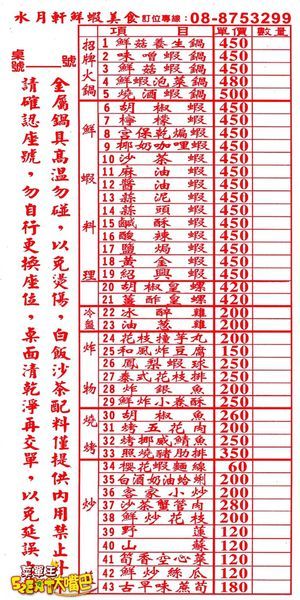 水月軒鮮蝦美食 訂位專線：08-8753299
桌號
單價 數量
招牌火鍋
1 鮮菇養生鍋 450
2 味噌蝦鍋 450
3 鮮菇蝦鍋 450
4 鮮蝦泡菜鍋 480
5 燒酒蝦鍋 500
鮮蝦料理
6 胡椒蝦 450
7 檸檬蝦 450
8 宮保乾煸蝦 450
9 椰奶咖哩蝦 450
10 沙茶蝦 450
11 麻油蝦 450
12 醬油蝦 450
13 蒜泥蝦 450
14 蒜頭蝦 450
15 鹹酥蝦 450
16 酸辣蝦 450
17 鹽焗蝦 450
18 黃金蝦 450
19 紹興蝦 450
20 胡椒皇螺 420
21 薑酢皇螺 420
冷盤
22 冰醉雞 200
23 油蔥雞 200
炸物
24 花枝撞芋丸 200
25 和風炸豆腐 150
26 鳳梨蝦球 250
27 泰式花枝排 250
28 炸銀魚 250
29 鮮炸小卷酥 250
燒烤
30 胡椒魚 260
31 烤五花肉 200
32 烤挪威鯖魚 200
33 照燒豬肋排 350
炒
34 櫻花蝦麵線 60
35 白酒奶油蛤蜊 200
36 客家小炒 200
37 沙茶蟹管肉 280
38 鮮炒花枝 200
39 野蓮 200
40 山蘇 200
41 筍香空心菜 120
42 鮮炒絲瓜 120
43 古早味蒸筍 180
金屬鍋具高溫勿碰，以免燙傷，白飯沙茶配料僅提供內用禁止外
請確認座號，勿自行更換座位，桌面清乾淨再交單，以免延誤